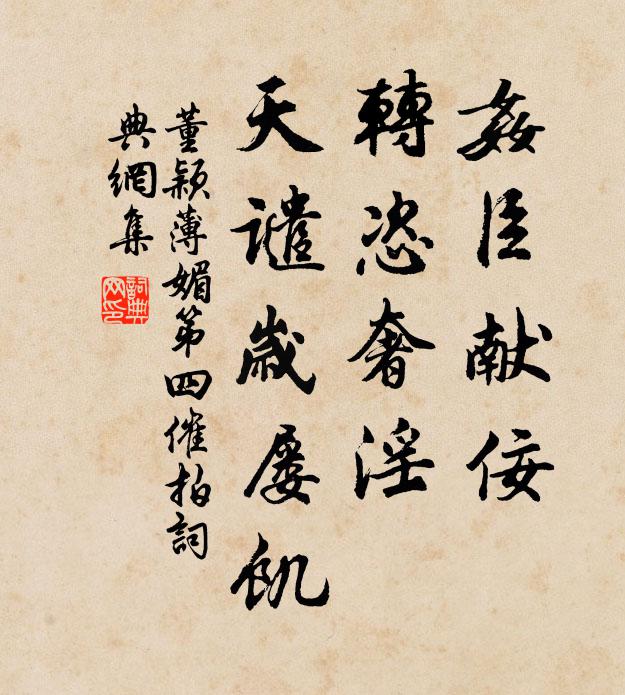 姦臣献佞
轉恣奢淫
天譴歲屡飢
董颖薄媚第四催拍詞
典網集
詞典网印